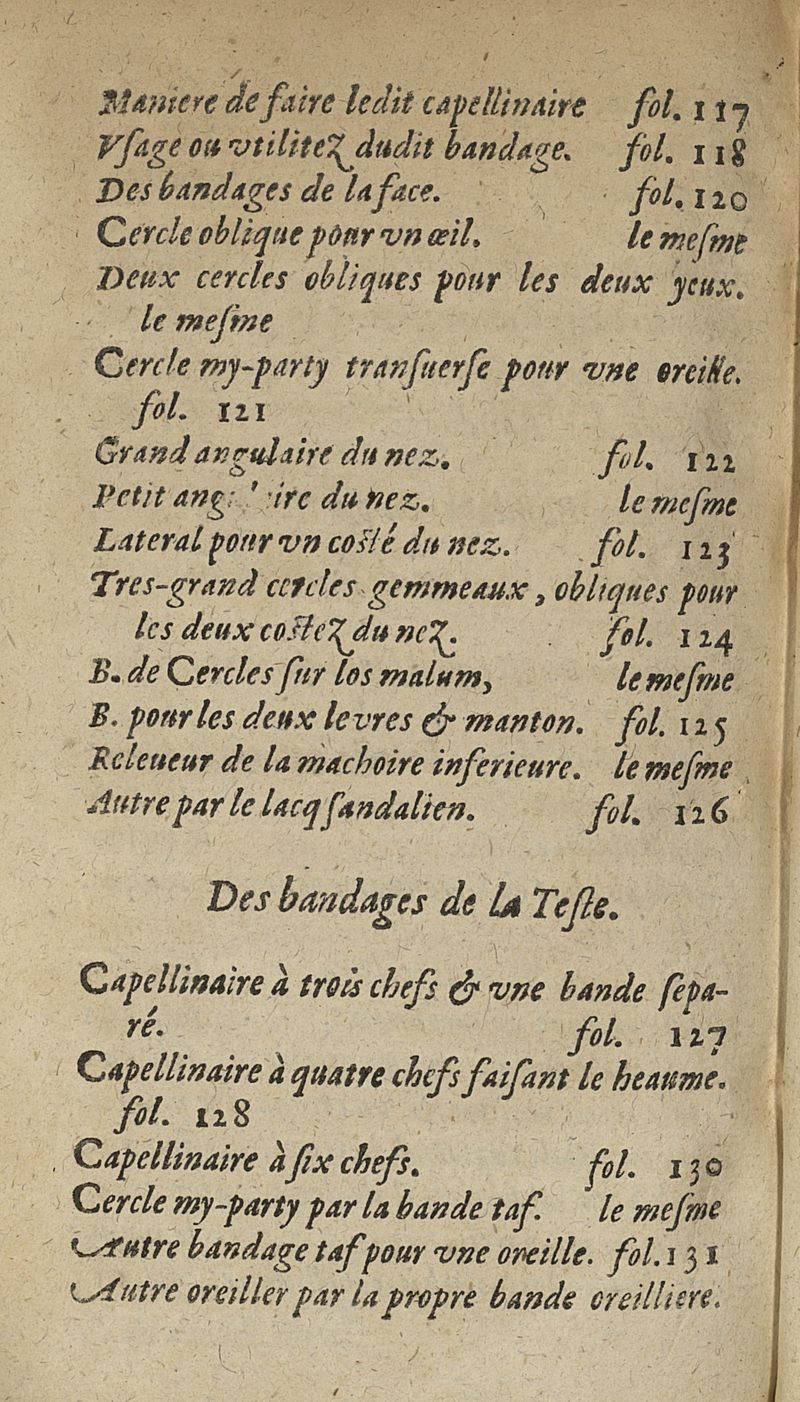 Maniere de faire ledit capellinaire fol. 117
Vſage ou vtilitez dudit bandage. fol. 118
Des bandages de la face. fol. 120
Cercle oblique pour vn œil. le meſme
Deux cercles obliques pour les deux yeux.
le meſme
Cercle my-party tranſuerſe pour vne oreille.
fol. 121
Grand angulaire du nez. fol. 122
Petit du nez. le meſme
Lateral pour vn coſté du nez. fol. 123
Tres-grand cercles gemmeaux, obliques pour
les deux coſtez du nez. fol. 124
B. de Cercles ſur los malum, le meſme
B. pour les deux levres & manton. fol. 125
Releueur de la machoire inferieure. le meſme
Autre par le lacq ſandalien. fol. 126
Des bandages de la Teſte.
Capellinaire à trois chefs & vne bande ſepa-
ré. fol. 127
Capellinaire à quatre chefs faiſant le heaume.
fol. 128
Capellinaire à ſix chefs. fol. 130
Cercle my-party par la bande taf. le meſme
Autre bandage taf pour vne oreille. fol. 131
Autre oreiller par la propre bande oreilliere.